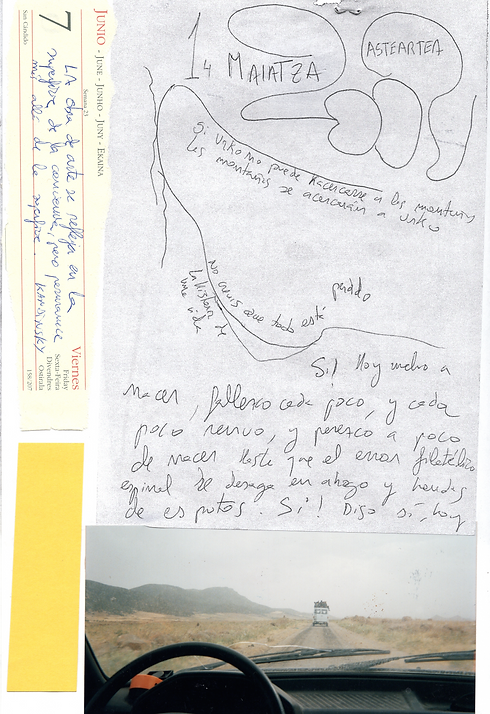 JUNIO - JUNE - JUNHO - JUNY - EKAINA
Semana 23
7
San Cándido
LA obra de arte se refleja en la
superficie de la conciencia, pero permanece
más allá de la superficie. KANDINSKY
Viernes
Friday
Sexta-Feira
Divendres
Ostirala
158/207
14 MAIATZA
ASTEARTEA
Si Urko no puede Hacercarse a las montañas
las montañas se acercarán a Urko
No que todo está perdido
la historia de
una vida
Si! Hoy vuelvo a
nacer, fallezco cada poco, y cada
poco y perezco a poco
de nacer Hasta que el error filatélico
espinal se desaga en ahogo y
de esputos. Si! Digo sí, hoy